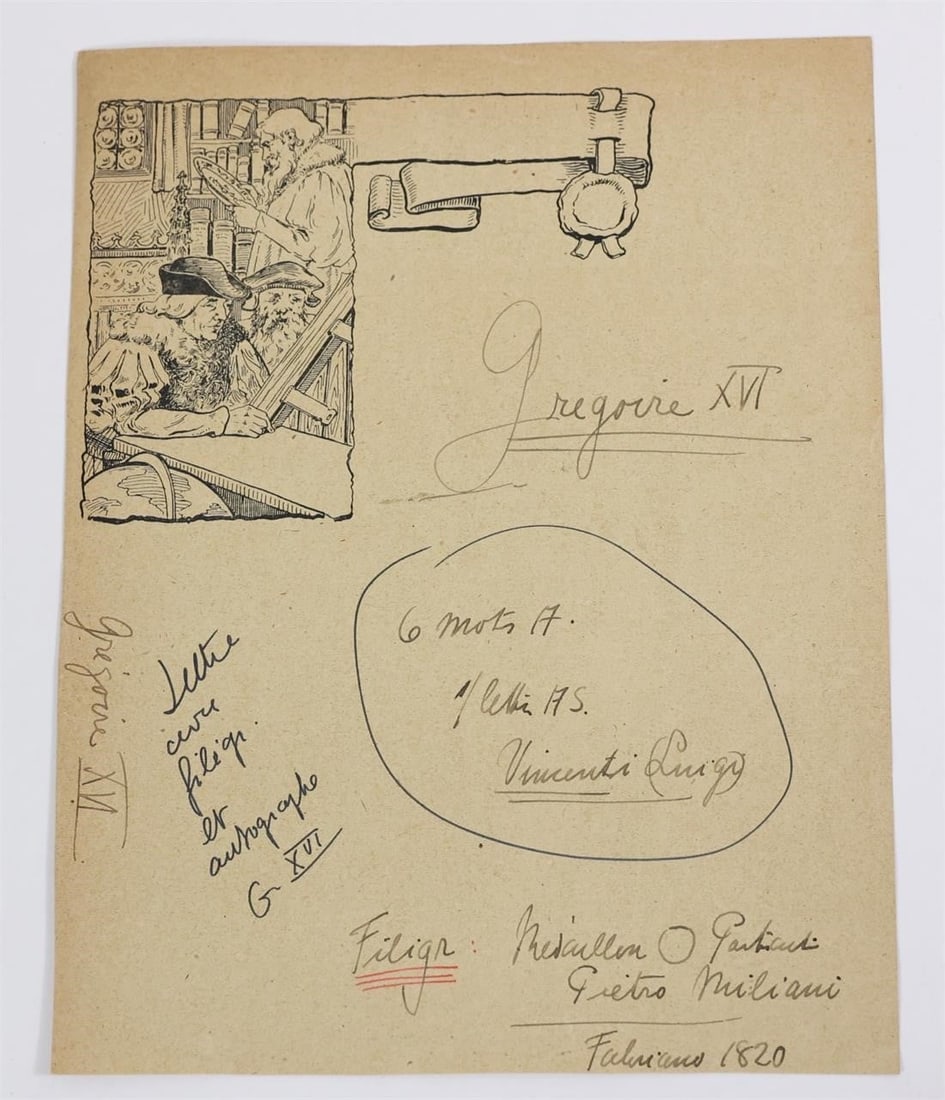 Gregoire XVI
6 mots A.
1 lettre A S.
Vincenti (Luigi)
Grégoire XVI
Lettre
avec
filigr.
et
autographe
G XVI
Filigr : Médaillon
Pietro Miliani
Fabriano 1820